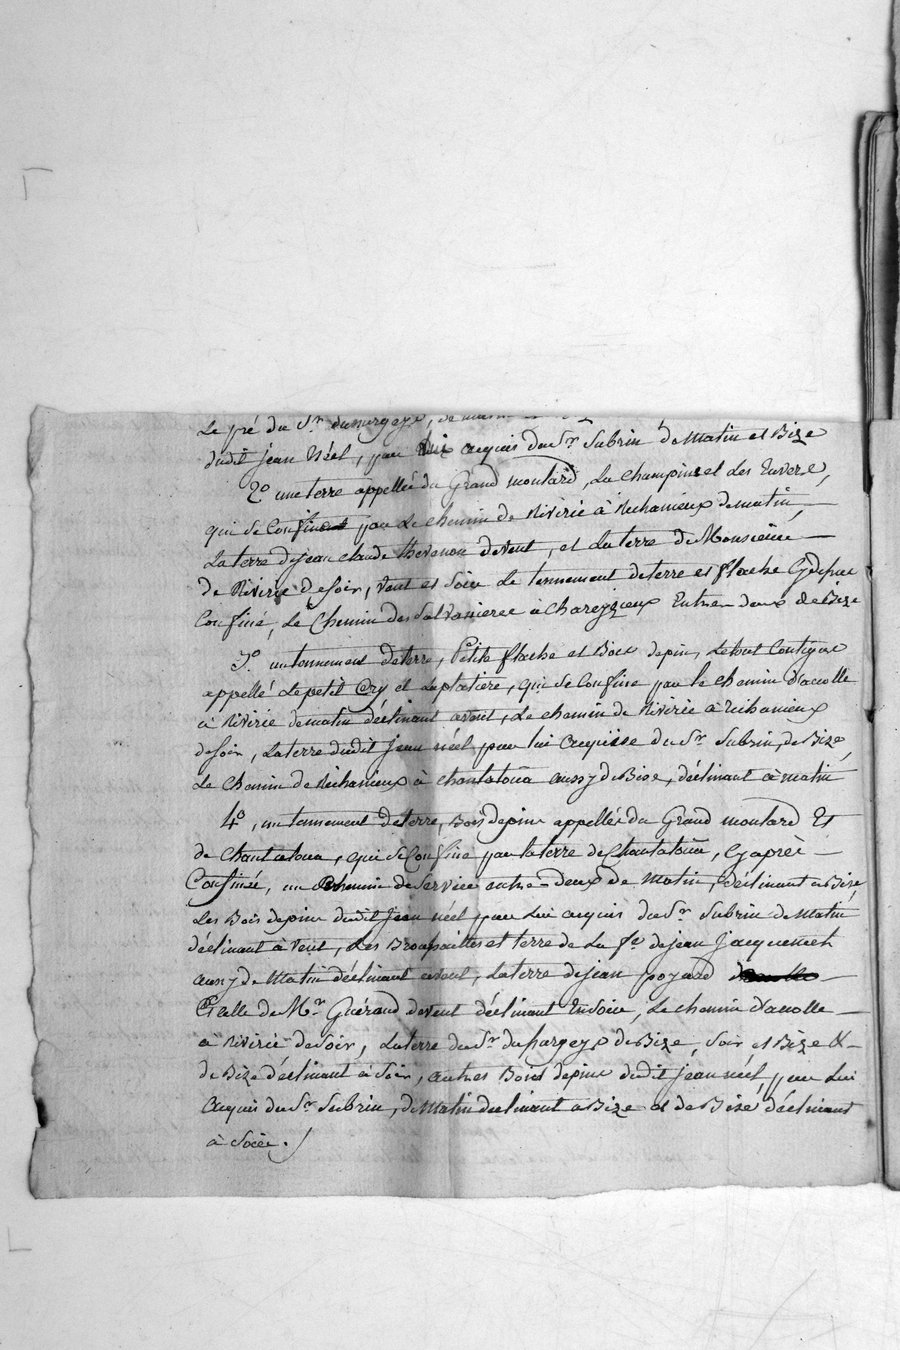 Le pré du Sr. dumurgeys, de
dudit jean Néel, par lui acquis du Sr. Subrin de Matin et Bize
2o une terre appellée du Grand moulard, La Champinet et Les Envers,
qui se Confine par Le chemin de Rivirie à Richanieux de matin,
La terre de jean claude thevenon devent, et La terre de Monsieur
de Rivirie de soir, vent et soir Le tennement de terre et flache Cy devant
Confiné, Le Chemin des Salvanieres à Chareyzieux Entre deux de Bize
3o un tennement de terre, Petite flache et Bois de pin, Le tout Contigue
appellé Le petit Cry et La platiere, qui se Confine par Le chemin
à Rivirie de matin déclinant à vent, Le chemin de Rivirie à Richanieux
de soir, La terre dudit jean néel par lui acquise du Sr. Subrin, de Bize,
Le Chemin de Richanieux à Chantatoüa aussy de Bise, déclinant à matin
4o, un tennement de terre, Bois de pin appellée du Grand moulard Et
de Chantatoua, qui se Confine par La terre de Chantatoüa, Cy après
Confinée, un Chemin de Service entre-deux de Matin, déclinant à Bize,
Les Bois de pin dudit jean néel par Lui acquis du Sr. Subrin de Matin
déclinant à Vent, Les Broussailles et terre de La fe. de jean jacquemet
aussy de Matin déclinant à vent, La terre de jean poyard
Celle de Mr. Guérand devent déclinant En soir, Le chemin
à Rivirie de Soir, La terre du Sr. dehargeys de Bize, Soir et Bize &
de Bize déclinant à Soir, autres Bois de pin dudit jean néel, par Lui
acquis du Sr. Subrin, de Matin declinant à Bize et de Bise déclinant
à Soir.